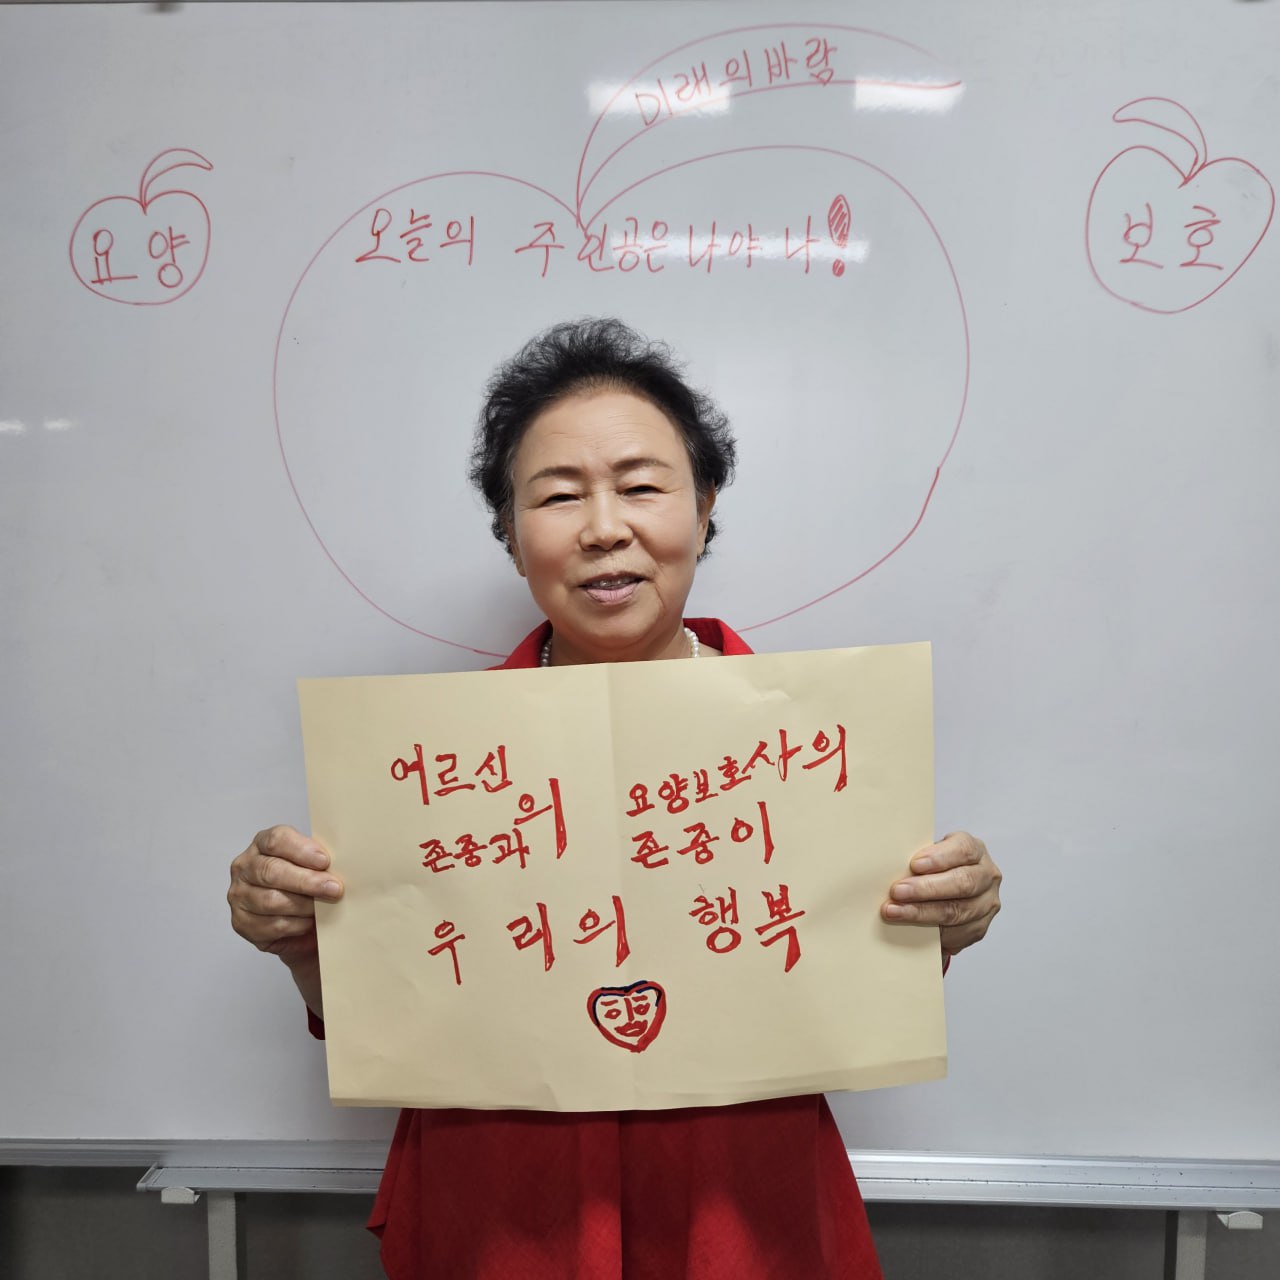 미래의 바람
요양
오늘의 주인공은 나야 나!
보호
어르신의 요양보호사의
존중과 존중이
우리의 행복